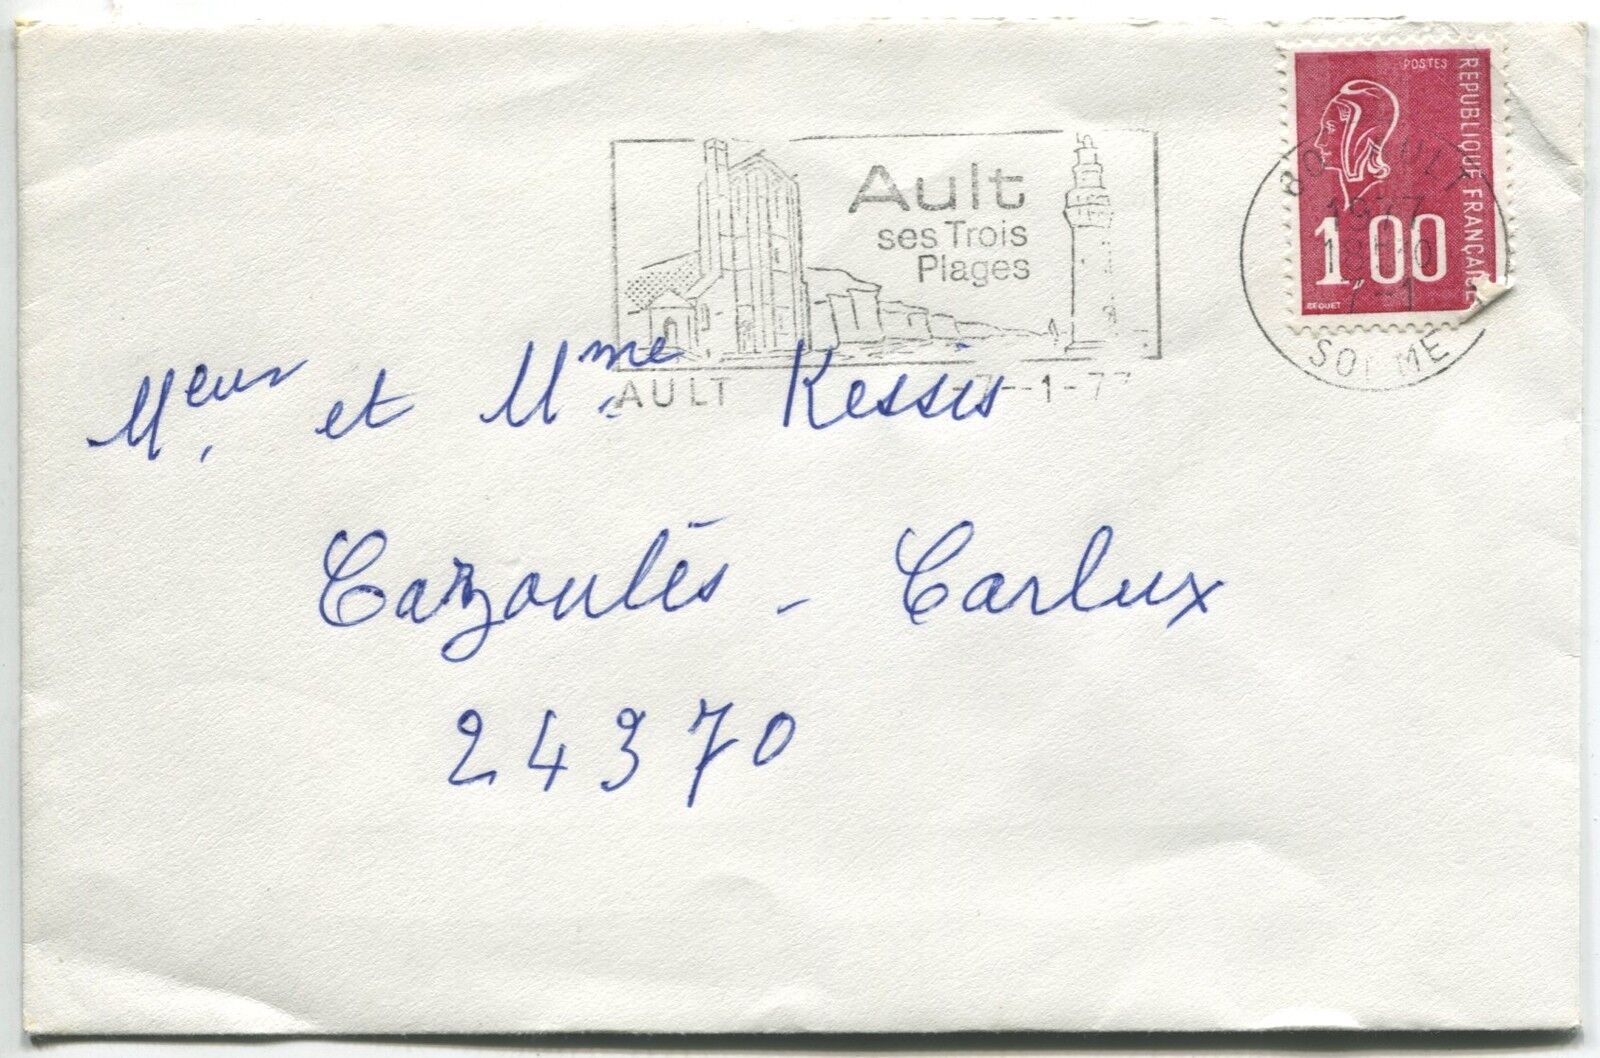 POSTES
REPUBLIQUE FRANÇAISE
1,00
BEQUET
80 AULT
1977
7-1
SOMME
Ault
ses Trois
Plages
AULT
-7--1-77
Meur et Mme Kessis
Cazoulès - Carlux
24370